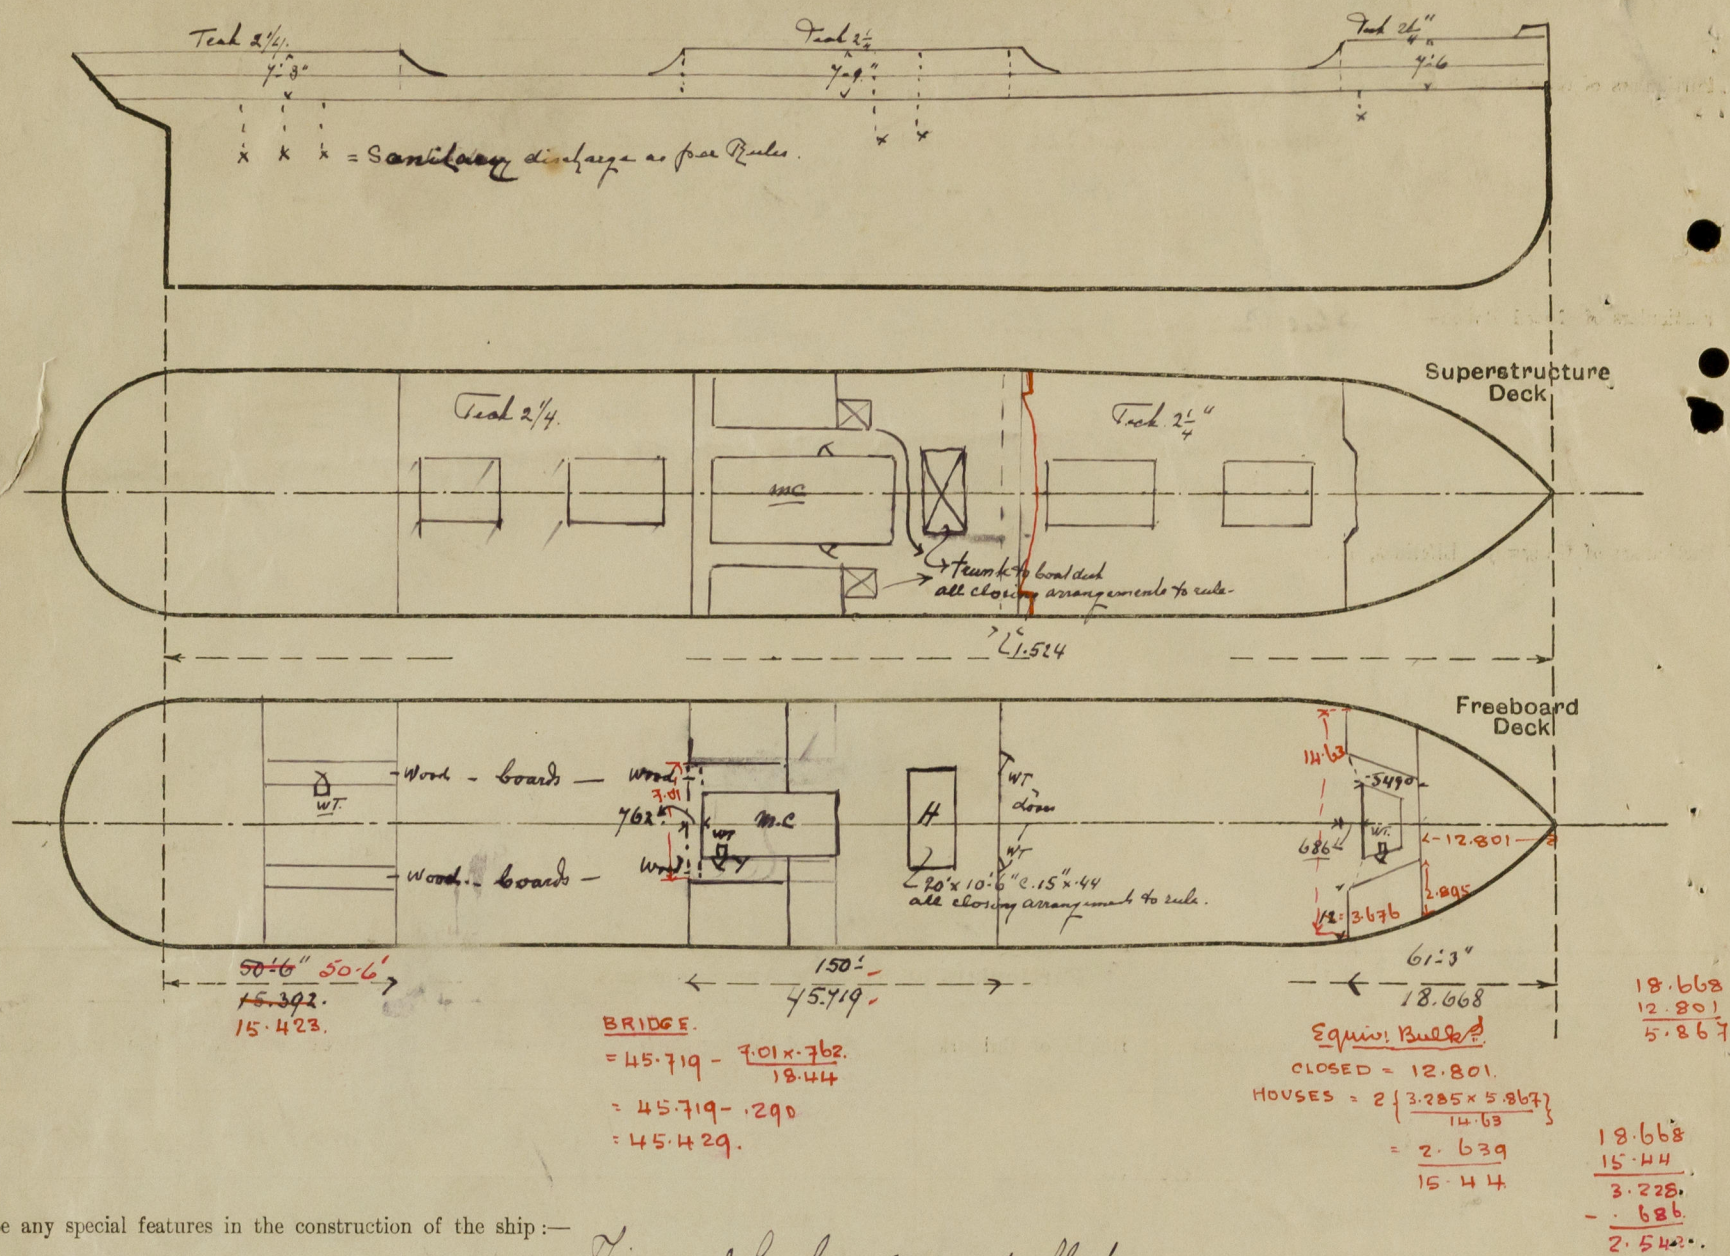 Teak 2 1/4.
7'-3"
Teak 2 1/4
7'-9"
Teak 2 1/4"
7'-6
x x x = Sanitary discharge as per Rules.
Superstructure
Deck
Teak 2 1/4.
Teak 2 1/4"
mc
trunk to boat deck
all closing arrangements to rule-
1.524
Freeboard
Deck
Wood - boards - Wood
WT.
7.01
762
M.C
WT
H
WT
door
WT
Wood - boards - Wood
20' x 10'-6" C. 15" x .44
all closing arrangements to rule.
14.63
5490
686
WT.
12.801
2.895
3.676
50'-6" 50-6'
15.392.
15.423.
150'-
45.719.
61'-3"
18.668
BRIDGE.
= 45.719 - 7.01 x .762.
18.44
= 45.719 - .290
= 45.429.
Equiv! Bulkd
CLOSED = 12.801.
HOUSES = 2 { 3.285 x 5.867 }
14.63
= 2.639
15.44
18.668
12.801
5.867
18.668
15.44
3.228.
- .686.
2.542.
e any special features in the construction of the ship :—